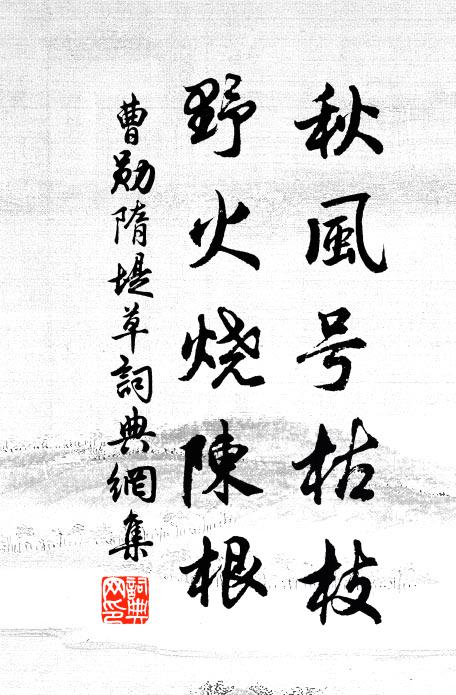 秋風号枯枝
野火燒陳根
曹勛隋堤草詞典網集
詞典網印